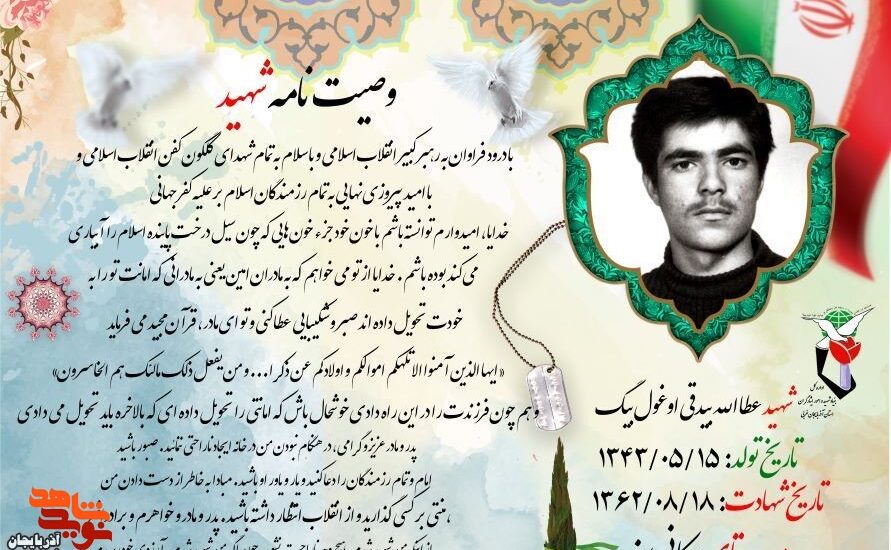 وصیت نامه شهید
با درود فراوان به رهبر کبیر انقلاب اسلامی و با سلام به تمام شهدای گلگون کفن انقلاب اسلامی و
با امید پیروزی نهایی به تمام رزمندگان اسلام بر علیه کفر جهانی
خدایا، امیدوارم توانسته باشم با خون خود جزء خون هایی که چون سیل درخت پاینده اسلام را آبیاری
می کند بوده باشم . خدایا از تو می خواهم که به مادران امین یعنی به مادرانی که امانت تو را به
خودت تحویل داده اند صبر و شکیبایی عطا کنی و تو ای مادر، قرآن مجید می فرماید
«ایها الذین آمنوا لا تلهکم اموالکم و اولادکم عن ذکر ا... و من یفعل ذلک مالنک هم الخاسرون»
و هم چون فرزندت را در این راه دادی خوشحال باش که امانتی را تحویل داده ای که بالاخره باید تحویل می دادی
پدر و مادر عزیز و گرامی، در هنگام نبودن من در خانه ایجاد ناراحتی نمائید. صبور باشید
امام و تمام رزمندگان را دعا کنید و یار و یاور او باشید. مبادا به خاطر از دست دادن من
، منتی بر کسی گذارید و از انقلاب انتظار داشته باشید، پدر و مادر و خواهرم و براد
شهید عطا الله بیدقی اوغول بیگ
تاریخ تولد: ۱۳۴۳/۰۵/۱۵
تاریخ شهادت: ۱۳۶۲/۰۸/۱۸
اداره کل
بنیاد شهید و امور ایثارگران
استان آذربایجان غربی
نوید شاهد
آذربایجان